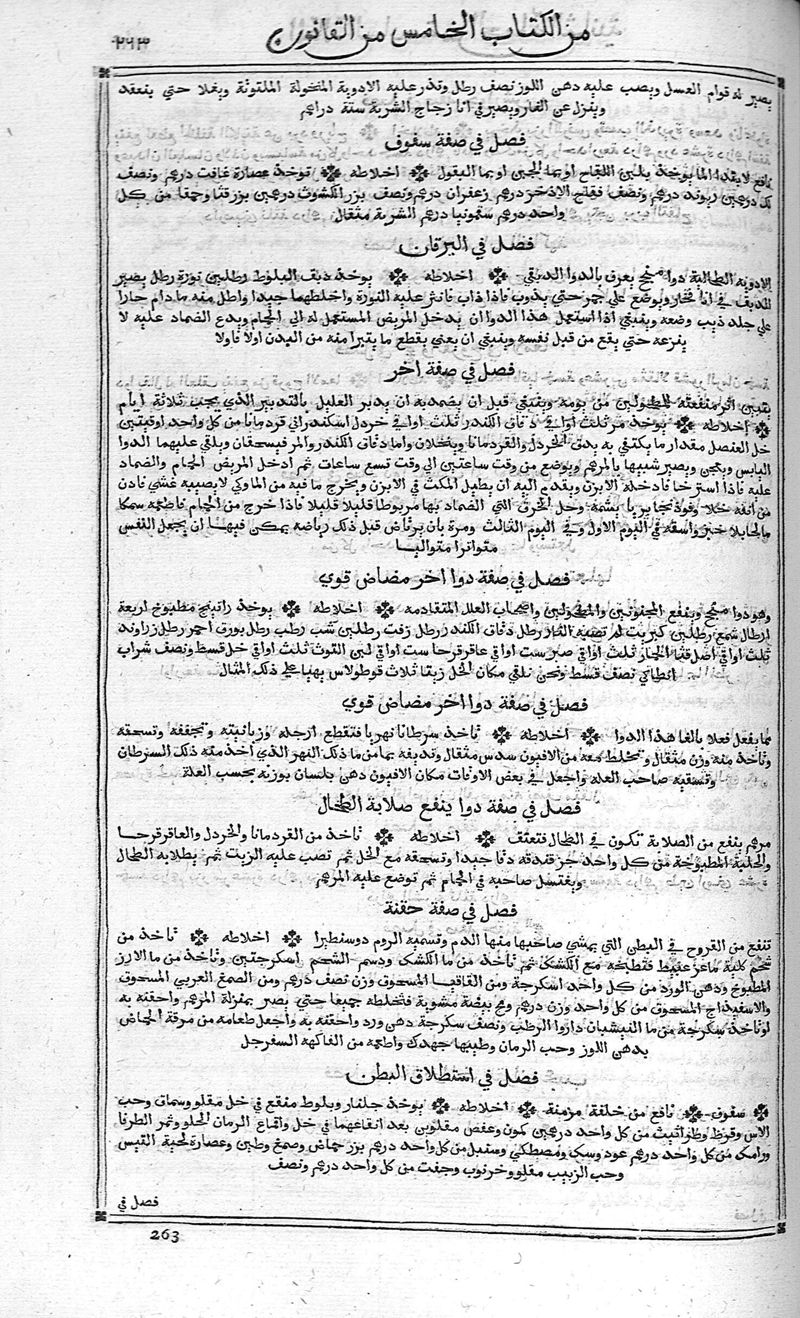 من الكتاب الخامس من القانون ٢٦٣
يصير له قوام العسل ويصب عليه دهن اللوز نصف رطل وتذر عليه الادوية المنخولة الملتوتة ويغلا حتي ينعقد
وينزل عن النار ويصير في انا زجاج الشربة ستة دراهم
فصل في صفة سفوف
نافع لابتدا الما يوخذ بلبن اللقاح او بما الجبن او بما البقول اخلاطه توخذ عصارة غافت درهم ونصف
لك درهمين ريوند درهم ونصف فقاح الاذخر درهم زعفران درهم ونصف بزر الكشوث درهمين بزر قثا وحمقا من كل
واحد درهم سقمونيا درهم الشربة مثقال
فصل في اليرقان
الادوية الطالية دوا منجح يعرف بالدوا الدبقي اخلاطه يوخذ دبق البلوط رطلين نورة رطل يصير
الدبق في انا فخار ويوضع علي جمر حتي يذوب فاذا ذاب فانثر عليه النورة واخلطهما جيدا واطل منه ما دام حارا
علي جلد ذيب وضعه وينبغي اذا استعمل هذا الدوا ان يدخل المريض المستعمل له الي الحمام ويدع الضماد عليه لا
ينزعه حتي يقع من قبل نفسه وينبغي ان يعني بقطع ما يتبرا منه من البدن اولا فاولا
فصل في صفة اخر
يتبين اثر منفعته للمطحولين من يومه وينبغي قبل ان يضمد به ان يدبر العليل بالتدبير الذي يجب ثلاثة ايام
اخلاطه يوخذ مر ثلث اواقي دقاق الكندر ثلث اواقي خردل اسكندراني قردمانا من كل واحد اوقيتين
خل العنصل مقدار ما يكتفي به يدق الخردل والقردمانا وينخلان واما دقاق الكندر والمر فيسحقان ويلقي عليهما الدوا
اليابس ويعجن ويصير شبيها بالمرهم ويوضع من وقت ساعتين الي وقت تسع ساعات ثم ادخل المريض الحمام والضماد
عليه فاذا استرخا فادخله الابزن ويقدم اليه ان يطيل المكث في الابزن ويخرج ما فيه من الماوكي لا يصيبه غشي فادن
من انفه خلا وفوذنجا بريا يشمه وحل الخرق التي الضماد بها مربوطا قليلا قليلا فاذا خرج من الحمام فاطعمه سمكا
مالحا بلا خبز واسقه في اليوم الاول وفي اليوم الثالث ومره بان يرتاض قبل ذلك رياضه يمكن فيها ان يجعل النفس
متواترا متواليا
فصل في صفة دوا اخر مضاض قوي
وهو دوا منجح وينفع المجنونين والمطحولين واصحاب العلل المتقادمه اخلاطه يوخذ راتينج مطبوخ اربعة
ارطال شمع رطلين كبريت لم تصبه النار رطل دقاق الكندر رطل زفت رطلين شب رطب رطل بورق احمر رطل زراوند
ثلث اواقي اصل قثا الحمار ثلث اواقي صبر ست اواقي عاقرقرحا ست اواقي لبن التوث ثلث اواقي خل قسط ونصف شراب
انطاكي نصف قسط ونحن نلقي مكان الخل زيتا ثلاث قوطولاس يهيا علي ذلك المثال
فصل في صفة دوا اخر مضاض قوي
مما يفعل فعلا بالغا هذا الدوا اخلاطه تاخذ سرطانا نهريا فتقطع ارجله وزبانيته وتجففه وتسحقه
وتاخذ منه وزن مثقال وتخلط معه من الافيون سدس مثقال وتديفه بما من ما ذلك النهر الذي اخذ منه ذلك السرطان
وتسقيه صاحب العلة واجعل في بعض الاوقات مكان الافيون دهن بلسان بوزنه بحسب العلة
فصل في صفة دوا ينفع صلابة الطحال
مرهم ينفع من الصلابة تكون في الطحال فتعتق اخلاطه تاخذ من القردمانا والخردل والعاقرقرحا
والحلبة المطبوخة من كل واحد جز فتدقه دقا جيدا وتسحقه مع الخل ثم تصب عليه الزيت ثم يطلا به الطحال
ويغتسل صاحبه في الحمام ثم توضع عليه المرهم
فصل في صفة حقنة
تنفع من القروح في البطن التي يمشي صاحبها منها الدم وتسميه الروم دوسنطيرا اخلاطه تاخذ من
شحم كلية ماعز عبيط فتطبخه مع الكشك ثم تاخذ من ما الكشك ودسم الشحم اسكرجتين وتاخذ من ما الارز
المطبوخ ودهن الورد من كل واحد اسكرجة ومن القاقيا المسحوق وزن نصف درهم ومن الصمغ العربي المسحوق
والاسفيذاج المسحوق من كل واحد وزن درهم ومح بيضة مشوية فتخلطه جميعا حتي يصير بمنزلة المرهم واحقنه به
او تاخذ سكرجة من ما النيشيان داروا الرطب ونصف سكرجة دهن ورد واحقنه به واجعل طعامه من مرقة الحماض
بدهن اللوز وحب الرمان وطيبها جهدك واطعمه من الفاكهه السفرجل
فصل في استطلاق البطن
سفوف نافع من خلفة مزمنة اخلاطه يوخذ جلنار وبلوط منقع في خل مقلو وسماق وحب
الاس وقرظ وطراثيث من كل واحد درهمين كمون وعفص مقلوين بعد انقاعهما في خل واقماع الرمان الحلو وثمر الطرفا
ورامك من كل واحد درهم عود وسك ومصطكي وسنبل من كل واحد درهم بزر حماض وصمغ وطين وعصارة لحية التيس
وحب الزبيب مقلو وخرنوب وجفت من كل واحد درهم ونصف
فصل في
263